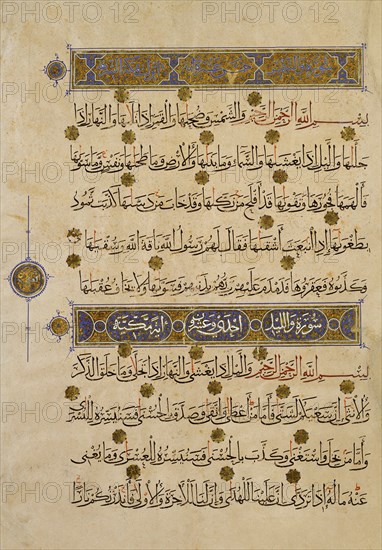 بسم الله الرحمن الرحيم والشمس وضحيها والقمر اذا تليها والنهار اذا
جليها واليل اذا يغشيها والسماء وما بنيها والارض وما طحيها ونفس وما سويها
فالهمها فجورها وتقويها قد افلح من زكيها وقد خاب من دسيها كذبت ثمود
بطغويها اذ انبعث اشقيها فقال لهم رسول الله ناقة الله وسقيها
فكذبوه فعقروها فدمدم عليهم ربهم بذنبهم فسويها ولا يخاف عقبيها
سورة والليل احدى وعشرون اية مكية
بسم الله الرحمن الرحيم واليل اذا يغشى والنهار اذا تجلى وما خلق الذكر
والانثى ان سعيكم لشتى فاما من اعطى واتقى وصدق بالحسنى فسنيسره لليسرى
واما من بخل واستغنى وكذب بالحسنى فسنيسره للعسرى وما يغنى
عنه ماله اذا تردى ان علينا للهدى وان لنا للاخرة والاولى فانذرتكم نارا